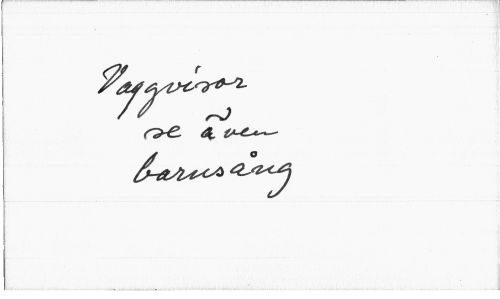 Vaggvisor
se även
barnsång